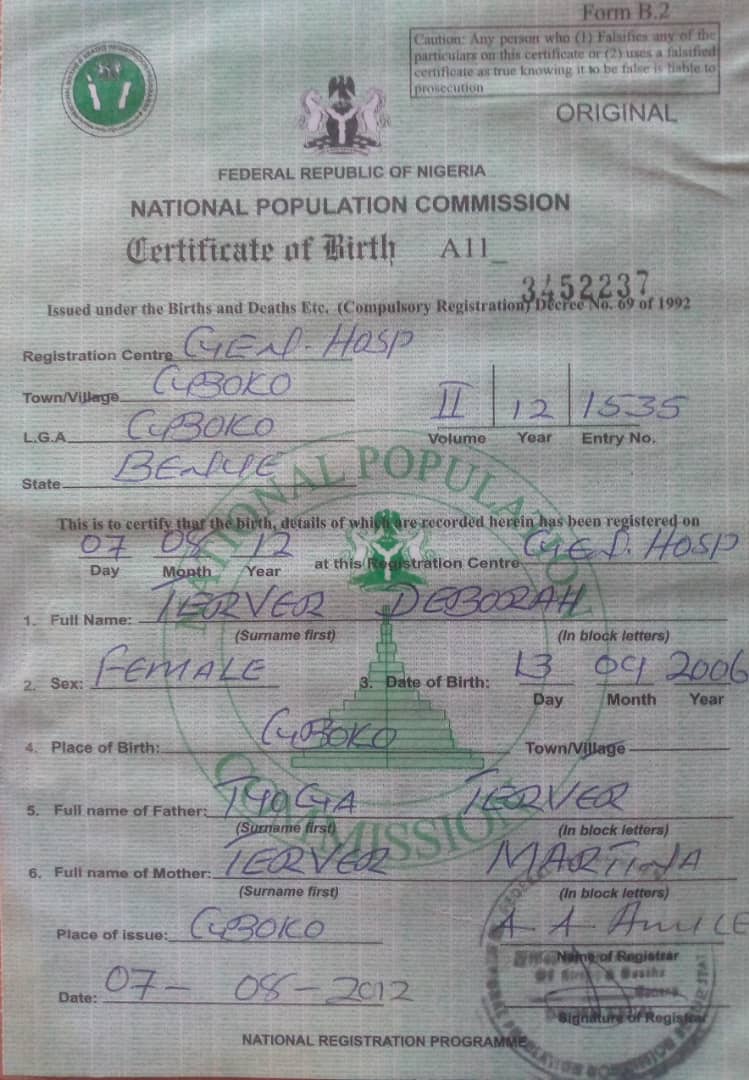 Form B.2
Caution: Any person who (1) Falsifies any of the
particulars on this certificate or (2) uses a falsified
certificate as true knowing it to be false is liable to
prosecution
ORIGINAL
FEDERAL REPUBLIC OF NIGERIA
NATIONAL POPULATION COMMISSION
Certificate of Birth A11_
3452237
Issued under the Births and Deaths Etc. (Compulsory Registration) Decree No. 69 of 1992
Registration Centre GEN. HOSP
Town/Village GBOKO
L.G.A GBOKO
II 12 1535
Volume Year Entry No.
State BENUE
NATIONAL POPULATION COMMISSION
This is to certify that the birth, details of which are recorded herein has been registered on
07 08 12 at this Registration Centre GEN. HOSP
Day Month Year
1. Full Name: TERVER DEBORAH
(Surname first) (In block letters)
2. Sex: FEMALE 3. Date of Birth: 13 09 2006
Day Month Year
4. Place of Birth: GBOKO Town/Village
5. Full name of Father: TYOGA TERVER
(Surname first) (In block letters)
6. Full name of Mother: TERVER MARTINA
(Surname first) (In block letters)
Place of issue: GBOKO A A
Name of Registrar
Date: 07 - 08 - 2012
Signature of Registrar
NATIONAL REGISTRATION PROGRAMME